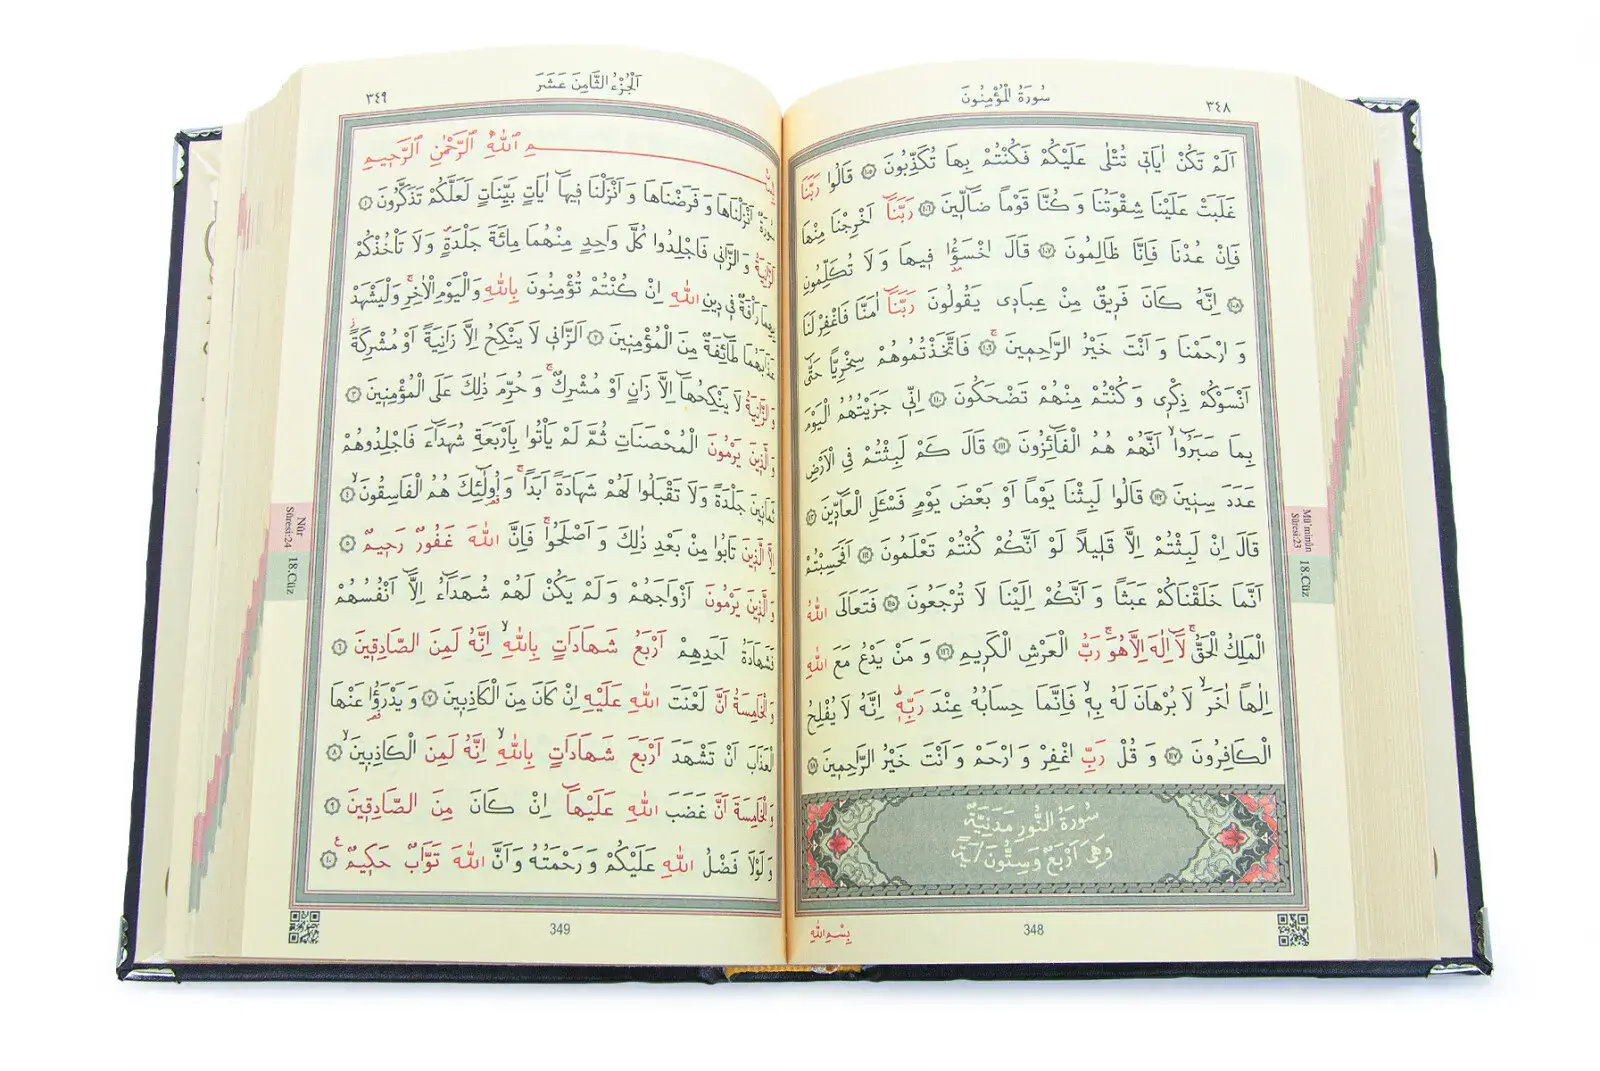 سُورَةُ الْمُؤْمِنُونَ
٣٤٨
اَلَمْ تَكُنْ اٰيَاتٖى تُتْلٰى عَلَيْكُمْ فَكُنْتُمْ بِهَا تُكَذِّبُونَ ﴿١٠٥﴾ قَالُوا رَبَّنَا
غَلَبَتْ عَلَيْنَا شِقْوَتُنَا وَ كُنَّا قَوْماً ضَٓالّٖينَ ﴿١٠٦﴾ رَبَّنَٓا اَخْرِجْنَا مِنْهَا
فَاِنْ عُدْنَا فَاِنَّا ظَالِمُونَ ﴿١٠٧﴾ قَالَ اخْسَؤُ۫ا فٖيهَا وَ لَا تُكَلِّمُونِ
﴿١٠٨﴾ اِنَّهُ كَانَ فَرٖيقٌ مِنْ عِبَادٖى يَقُولُونَ رَبَّنَٓا اٰمَنَّا فَاغْفِرْ لَنَا
وَ ارْحَمْنَا وَ اَنْتَ خَيْرُ الرَّاحِمٖينَ ﴿١٠٩﴾ فَاتَّخَذْتُمُوهُمْ سِخْرِيًّا حَتّٰٓى
اَنْسَوْكُمْ ذِكْرٖى وَ كُنْتُمْ مِنْهُمْ تَضْحَكُونَ ﴿١١٠﴾ اِنّٖى جَزَيْتُهُمُ الْيَوْمَ
بِمَا صَبَرُٓوا اَنَّهُمْ هُمُ الْفَٓائِزُونَ ﴿١١١﴾ قَالَ كَمْ لَبِثْتُمْ فِى الْاَرْضِ
عَدَدَ سِنٖينَ ﴿١١٢﴾ قَالُوا لَبِثْنَا يَوْماً اَوْ بَعْضَ يَوْمٍ فَسْـَٔلِ الْعَٓادّٖينَ ﴿١١٣﴾
قَالَ اِنْ لَبِثْتُمْ اِلَّا قَلٖيلاً لَوْ اَنَّكُمْ كُنْتُمْ تَعْلَمُونَ ﴿١١٤﴾ اَفَحَسِبْتُمْ
اَنَّمَا خَلَقْنَاكُمْ عَبَثاً وَ اَنَّكُمْ اِلَيْنَا لَا تُرْجَعُونَ ﴿١١٥﴾ فَتَعَالَى اللّٰهُ
الْمَلِكُ الْحَقُّ لَٓا اِلٰهَ اِلَّا هُوَ رَبُّ الْعَرْشِ الْكَرٖيمِ ﴿١١٦﴾ وَ مَنْ يَدْعُ مَعَ اللّٰهِ
اِلٰهاً اٰخَرَ لَا بُرْهَانَ لَهُ بِهٖ فَاِنَّمَا حِسَابُهُ عِنْدَ رَبِّهٖ اِنَّهُ لَا يُفْلِحُ
الْكَافِرُونَ ﴿١١٧﴾ وَ قُلْ رَبِّ اغْفِرْ وَ ارْحَمْ وَ اَنْتَ خَيْرُ الرَّاحِمٖينَ ﴿١١٨﴾
سُورَةُ النُّورِ مَدَنِيَّةٌ
وَهِىَ اَرْبَعٌ وَسِتُّونَ اٰيَةً
بِسْمِ اللّٰهِ
348
Mü'minûn
Sûresi:23
18.Cüz
اَلْجُزْءُ الثَّامِنَ عَشَرَ
٣٤٩
بِسْمِ اللّٰهِ الرَّحْمٰنِ الرَّحٖيمِ
سُورَةٌ اَنْزَلْنَاهَا وَ فَرَضْنَاهَا وَ اَنْزَلْنَا فٖيهَٓا اٰيَاتٍ بَيِّنَاتٍ لَعَلَّكُمْ تَذَكَّرُونَ ﴿١﴾
اَلزَّانِيَةُ وَ الزَّانٖى فَاجْلِدُوا كُلَّ وَاحِدٍ مِنْهُمَا مِائَةَ جَلْدَةٍ وَ لَا تَاْخُذْكُمْ
بِهِمَا رَاْفَةٌ فٖى دٖينِ اللّٰهِ اِنْ كُنْتُمْ تُؤْمِنُونَ بِاللّٰهِ وَالْيَوْمِ الْاٰخِرِ وَلْيَشْهَدْ
عَذَابَهُمَا طَٓائِفَةٌ مِنَ الْمُؤْمِنٖينَ ﴿٢﴾ اَلزَّانٖى لَا يَنْكِحُ اِلَّا زَانِيَةً اَوْ مُشْرِكَةً
وَ الزَّانِيَةُ لَا يَنْكِحُهَٓا اِلَّا زَانٍ اَوْ مُشْرِكٌ وَ حُرِّمَ ذٰلِكَ عَلَى الْمُؤْمِنٖينَ ﴿٣﴾
وَ الَّذٖينَ يَرْمُونَ الْمُحْصَنَاتِ ثُمَّ لَمْ يَاْتُوا بِاَرْبَعَةِ شُهَدَٓاءَ فَاجْلِدُوهُمْ
ثَمَانٖينَ جَلْدَةً وَلَا تَقْبَلُوا لَهُمْ شَهَادَةً اَبَداً وَ اُولٰٓئِكَ هُمُ الْفَاسِقُونَ ﴿٤﴾
اِلَّا الَّذٖينَ تَابُوا مِنْ بَعْدِ ذٰلِكَ وَ اَصْلَحُوا فَاِنَّ اللّٰهَ غَفُورٌ رَحٖيمٌ ﴿٥﴾
وَ الَّذٖينَ يَرْمُونَ اَزْوَاجَهُمْ وَ لَمْ يَكُنْ لَهُمْ شُهَدَٓاءُ اِلَّٓا اَنْفُسُهُمْ
فَشَهَادَةُ اَحَدِهِمْ اَرْبَعُ شَهَادَاتٍ بِاللّٰهِ اِنَّهُ لَمِنَ الصَّادِقٖينَ ﴿٦﴾
وَ الْخَامِسَةُ اَنَّ لَعْنَتَ اللّٰهِ عَلَيْهِ اِنْ كَانَ مِنَ الْكَاذِبٖينَ ﴿٧﴾ وَ يَدْرَؤُ۬ا عَنْهَا
الْعَذَابَ اَنْ تَشْهَدَ اَرْبَعَ شَهَادَاتٍ بِاللّٰهِ اِنَّهُ لَمِنَ الْكَاذِبٖينَ ﴿٨﴾
وَ الْخَامِسَةَ اَنَّ غَضَبَ اللّٰهِ عَلَيْهَٓا اِنْ كَانَ مِنَ الصَّادِقٖينَ ﴿٩﴾
وَ لَوْلَا فَضْلُ اللّٰهِ عَلَيْكُمْ وَ رَحْمَتُهُ وَ اَنَّ اللّٰهَ تَوَّابٌ حَكٖيمٌ ﴿١٠﴾
349
Nûr
Sûresi:24
18.Cüz